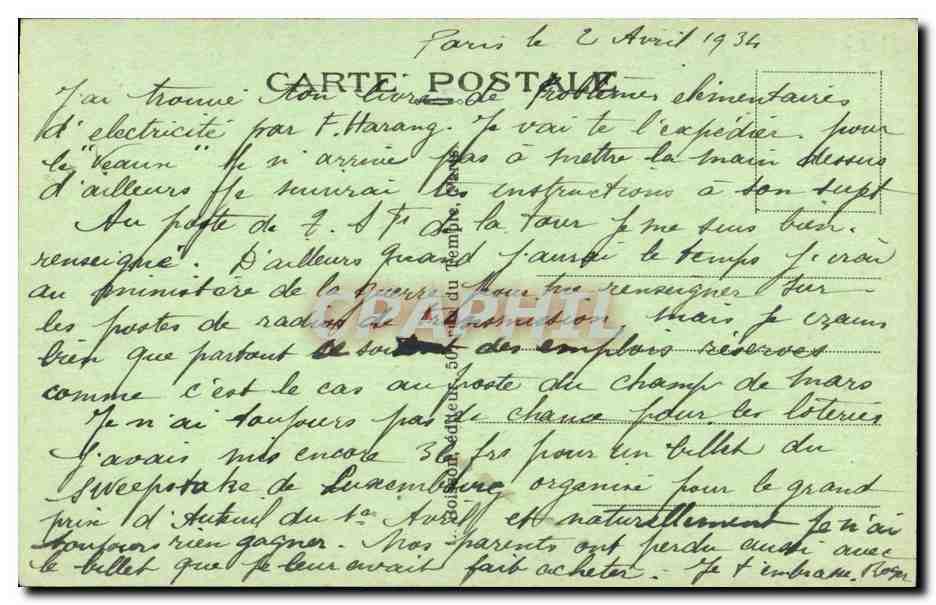 Paris le 2 Avril 1934
CARTE POSTALE
J'ai trouvé ton livre de Problèmes élémentaires
d'electricité par F. Harang. Je vai te l'expédier. pour
le "Veaun" Je n'arrive pas à mettre la main dessus
d'ailleurs Je suivrai tes instructions à son sujet
Au poste de T. S F de la tour Je me suis bien
renseigné. D'ailleurs quand J'aurai le temps J'irai
au ministère de la guerre pour me renseigner sur
les postes de radios de transmission, mais Je crains
bien que partout ce soit des emplois réservés
comme c'est le cas au poste du champ de mars
Je n'ai toujours pas de chance pour les loteries
J'avais mis encore 36 frs pour un billet du
sweepstake de Luxembourg organisé pour le grand
prix d'Auteuil du 1er Avril et naturellement Je n'ai
toujours rien gagner. Mes parents ont perdu aussi avec
le billet que Je leur avait fait acheter. Je t'embrasse. Roger
Boisson, éditeur, 50, du Temple, Paris
CPAPHIL